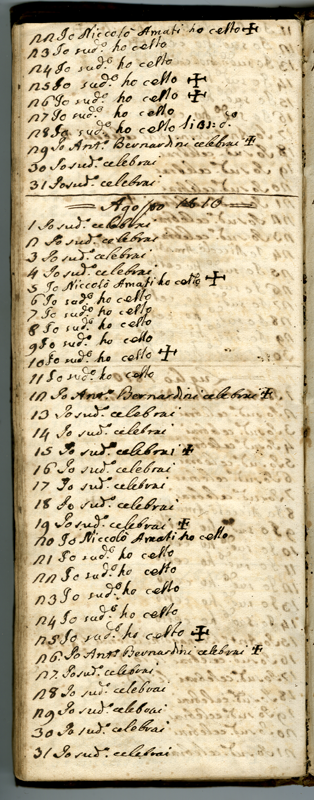 22 Io Niccolò Amati ho cell.to ✠
23 Io sud.o ho cell.to
24 Io sud.o ho cell.to
25 Io sud.o ho cell.to ✠
26 Io sud.o ho cell.to ✠
27 Io sud.o ho cell.to
28 Io sud.o ho cell.to
29 Io Ant.o Bernardini celebrai ✠
30 Io sud.o celebrai
31 Io sud.o celebrai
= Agosto =
1 Io sud.o celebrai
2 Io sud.o celebrai
3 Io sud.o celebrai
4 Io sud.o celebrai
5 Io Niccolò Amati ho cell.to ✠
6 Io sud.o ho cell.to
7 Io sud.o ho cell.to
8 Io sud.o ho cell.to
9 Io sud.o ho cell.to
10 Io sud.o ho cell.to ✠
11 Io sud.o ho cell.to
12 Io Ant.o Bernardini celebrai ✠
13 Io sud.o celebrai
14 Io sud.o celebrai
15 Io sud.o celebrai ✠
16 Io sud.o celebrai
17 Io sud.o celebrai
18 Io sud.o celebrai
19 Io sud.o celebrai ✠
20 Io Niccolò Amati ho cell.to
21 Io sud.o ho cell.to
22 Io sud.o ho cell.to
23 Io sud.o ho cell.to
24 Io sud.o ho cell.to
25 Io sud.o ho cell.to ✠
26 Io Ant.o Bernardini celebrai ✠
27 Io sud.o celebrai
28 Io sud.o celebrai
29 Io sud.o celebrai
30 Io sud.o celebrai
31 Io sud.o celebrai